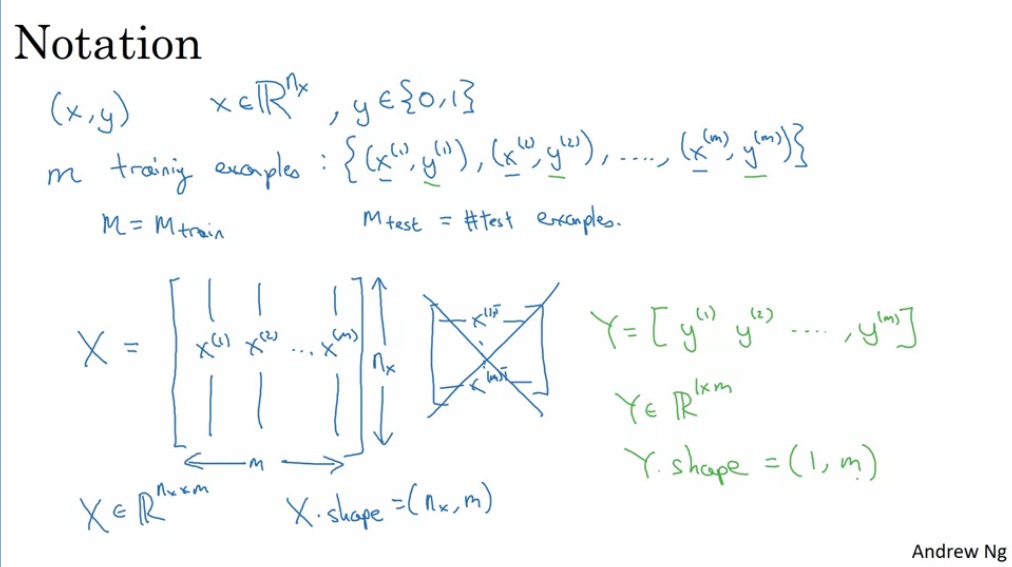 Notation
(x,y) x∈ℝ^{n_x}, y∈{0,1}
m trainiy examples : {(x^{(1)}, y^{(1)}), (x^{(2)}, y^{(2)}), ...., (x^{(m)}, y^{(m)})}
M = M_{train} M_{test} = #test examples.
X = [x^{(1)} x^{(2)} ... x^{(m)}] n_x
m
x^{(1)T}
x^{(m)T}
Y = [y^{(1)} y^{(2)} ...., y^{(m)}]
Y∈ ℝ^{1×m}
Y.shape = (1, m)
X∈ℝ^{n_x×m} X.shape = (n_x, m)
Andrew Ng